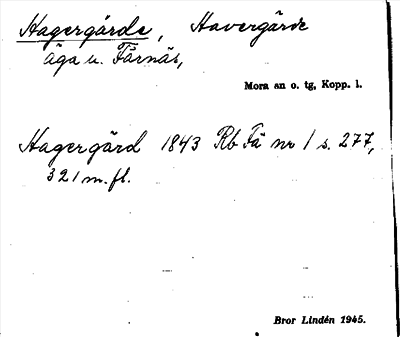 Hagergärde, Havergärde
äga u. Färnäs,
Mora sn o. tg, Kopp. l.
Hagergärd 1843 Rb Fä nr 1 s. 277,
321 m. fl.
Bror Lindén 1945.